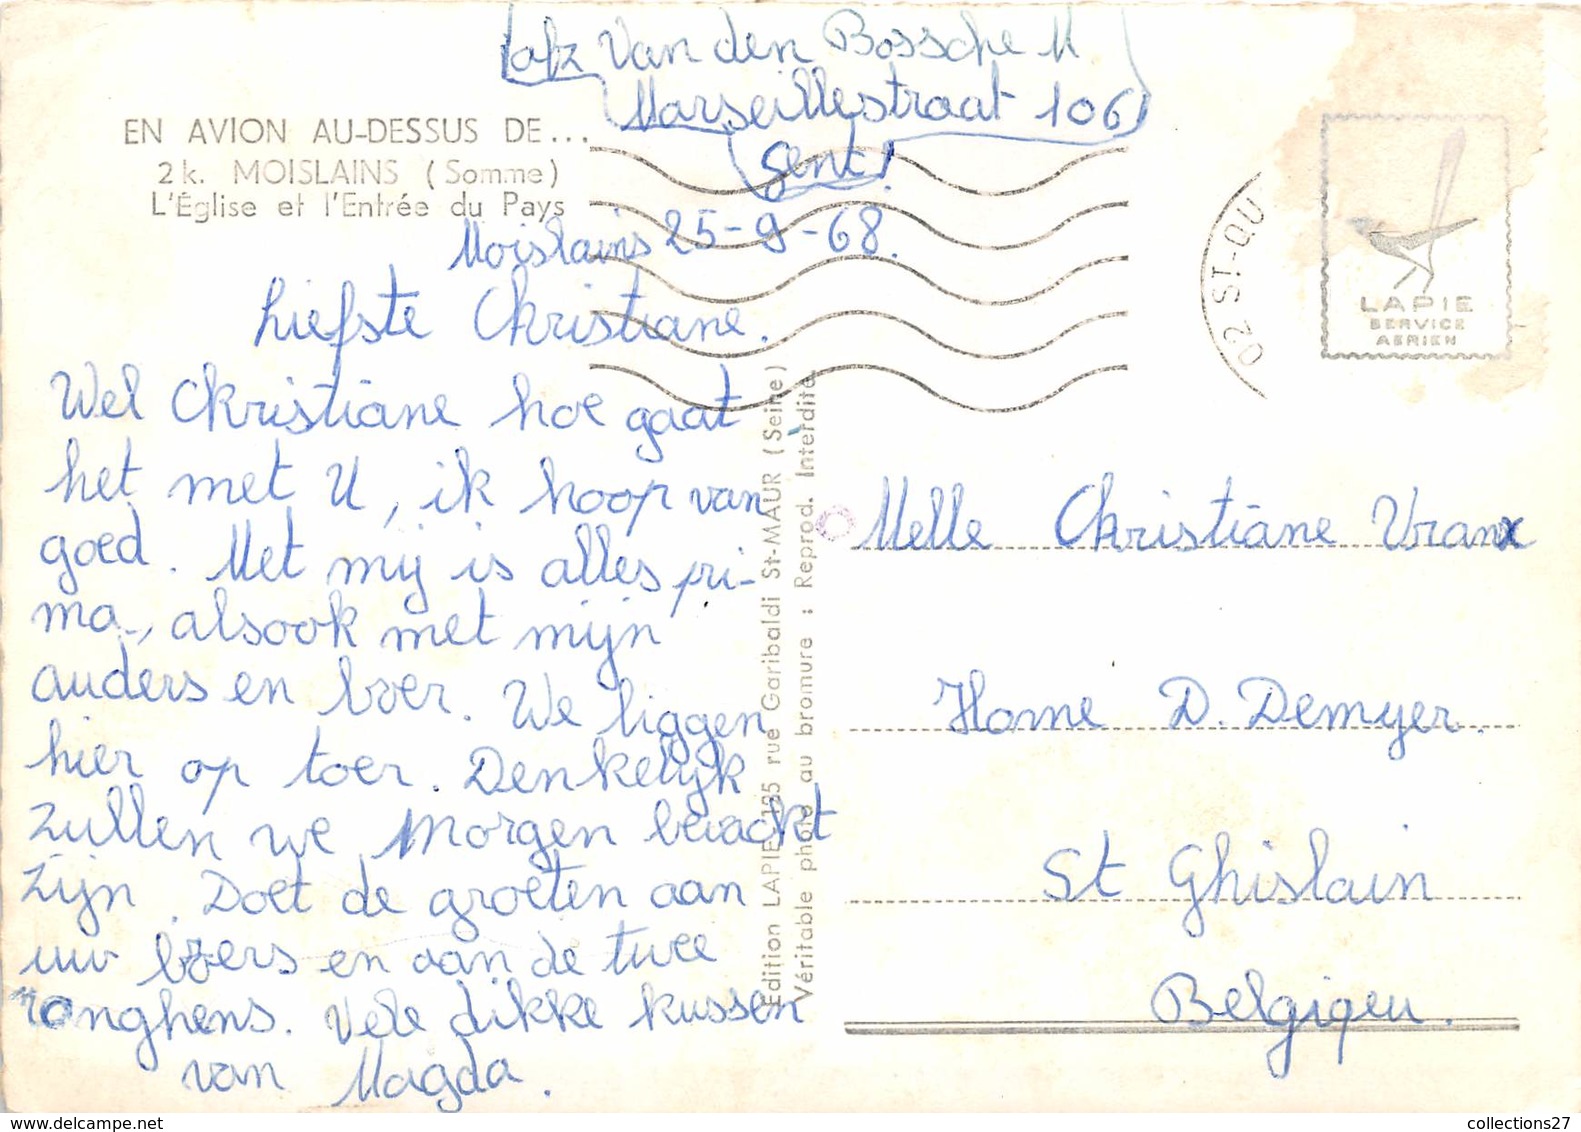 afz Van den Bossche M
Marseillestraat 106
Gent!
EN AVION AU-DESSUS DE...
2 k. MOISLAINS (Somme)
L'Église et l'Entrée du Pays
Moislains 25-9-68.
Liefste Christiane.
Wel Christiane hoe gaat
het met U, ik hoop van
goed. Met mij is alles pri-
ma, alsook met mijn
auders en broer. We liggen
hier op toer. Denkelijk
zullen we morgen bevracht
zijn. Doet de groeten aan
uw broers en aan de twee
jonghens. Vele dikke kussen
van Magda.
Edition LAPIE, 195 rue Garibaldi St-MAUR (Seine)
Véritable photo au bromure : Reprod. Interdite
02 ST-QU
LAPIE
SERVICE
AERIEN
Melle Christiane Vranx
Home D. Demyer.
St Ghislain
Belgiqeu.
collections27